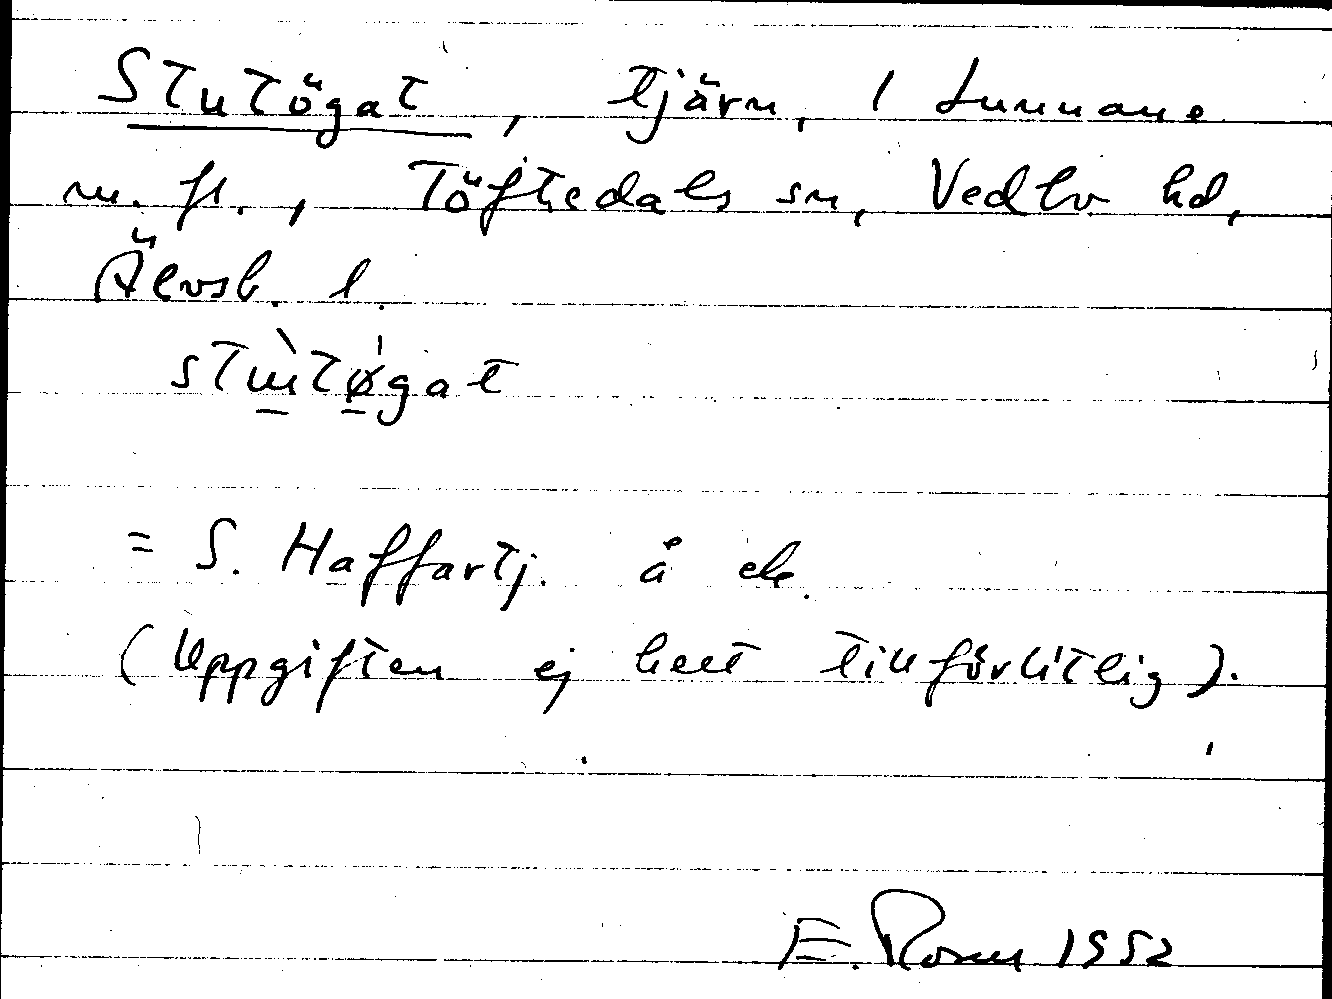 Stutögat, tjärn, 1 Lunnane
m. fl., Töftedals sn, Vedbo hd,
Älvsb. l.
stɯ̀tøgat
= S. Haffartj. å ek.
(Uppgiften ej helt tillförlitlig).
E. Rosell 1952